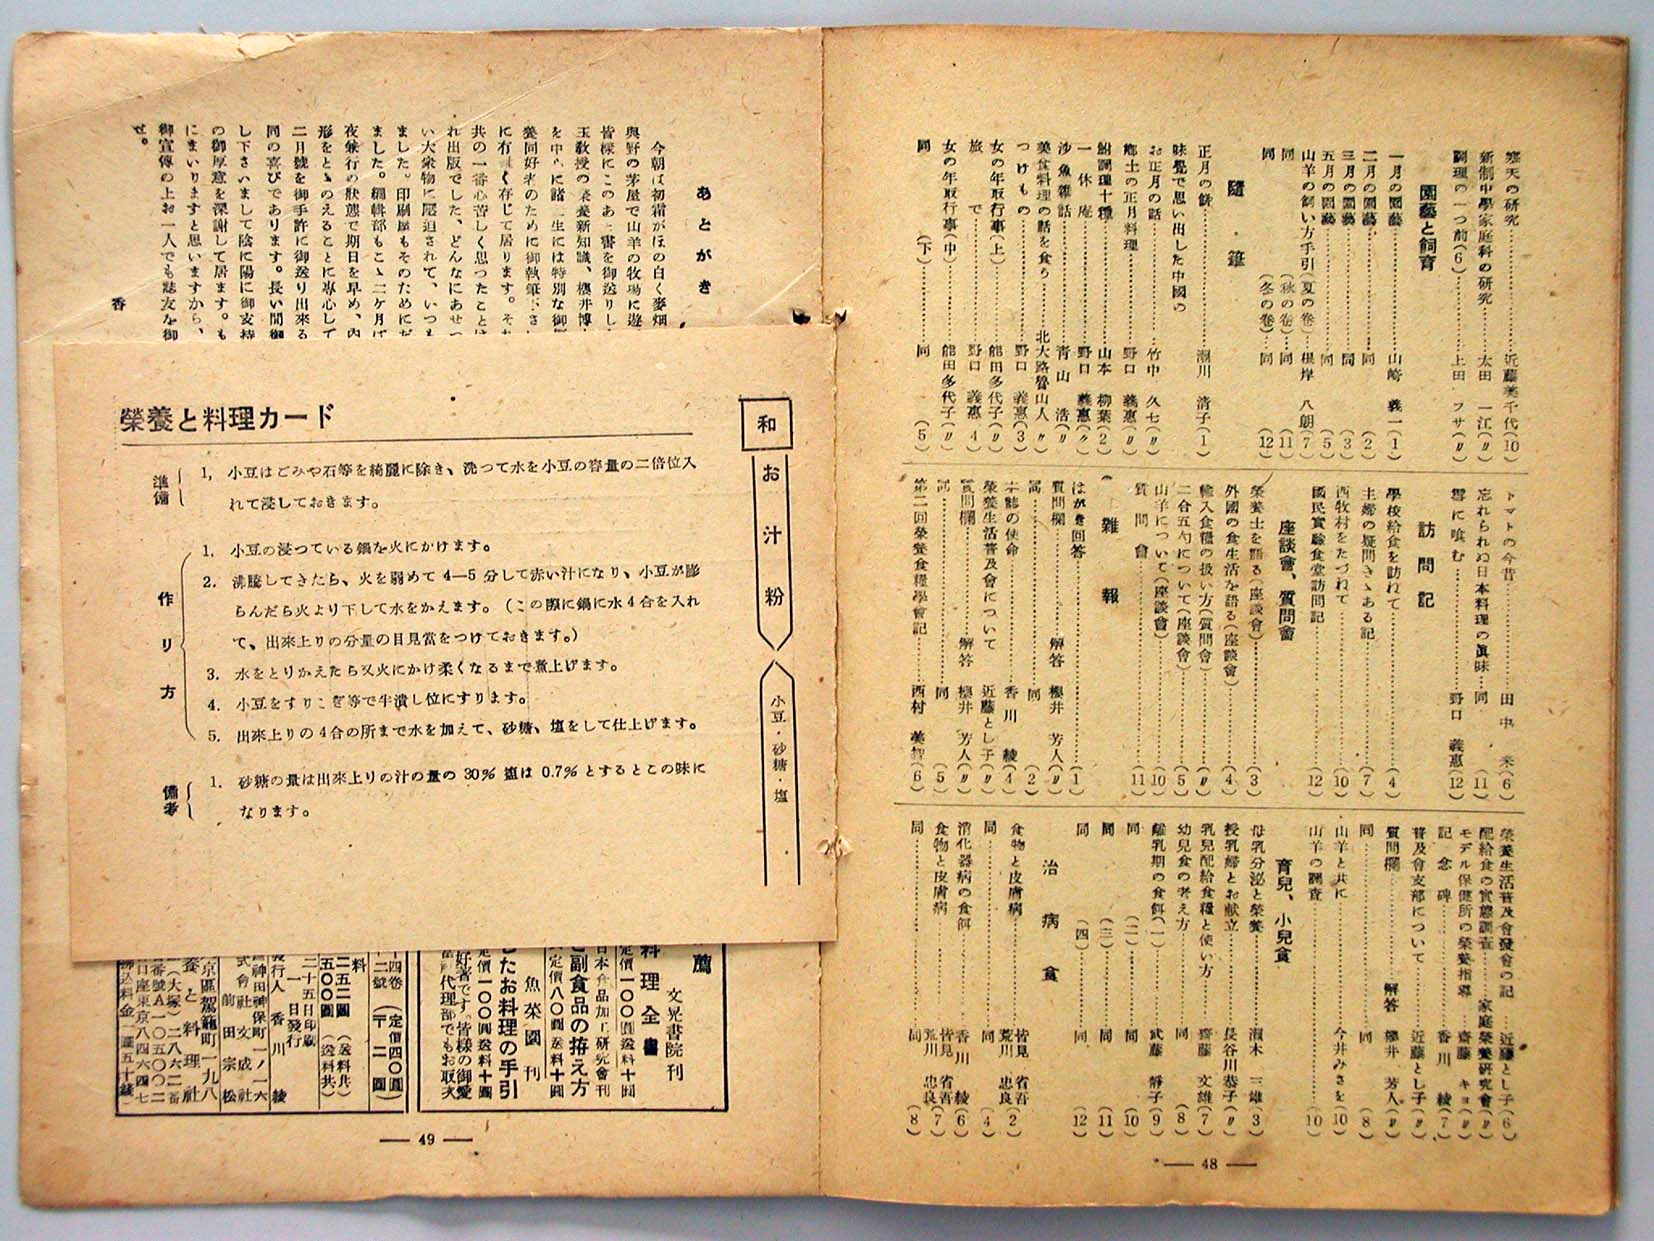 寒天の研究……近藤美千代(10)
新制中學家庭科の研究……太田 一江(〃)
調理の一つ前(6)……上田 フサ(〃)
園藝と飼育
一月の園藝……山崎 義一(1)
二月の園藝……同(2)
三月の園藝……同(3)
五月の園藝……同(5)
山羊の飼い方手引(夏の卷)…根岸 八朗(7)
同(秋の卷)…同(11)
同(冬の卷)…同(12)
隨・筆
正月の餅……瀨川 清子(1)
味覺で思い出した中國の
お正月の話……竹中 久七(〃)
鄕土の正月料理……野口 義惠(〃)
鮒調理十種……山本 柳葉(2)
一休庵……野口 義惠(〃)
沙魚雜話……靑山 浩(〃)
美食料理の話を食う……北大路魯山人(〃)
つけもの……野口 義惠(3)
女の年取行事(上)……能田多代子(〃)
旅で……野口 義惠(4)
女の年取行事(中)……能田多代子(〃)
同(下)……同(5)
トマトの今昔……田中 米(6)
忘れられぬ日本料理の眞味…同(11)
雪に喰む……野口 義惠(12)
訪問記
學校給食を訪ねて……(4)
主婦の疑問きゝある記……(7)
西牧村をたづねて……(10)
國民實驗食堂訪問記……(12)
座談會、質問會
榮養士を語る(座談會)……(3)
外國の食生活を語る(座談會)……(4)
輸入食糧の扱い方(質問會)……(〃)
二合五勺について(座談會)……(5)
山羊について(座談會)……(10)
質問會……(11)
雜報
はがき回答……(1)
質問欄……解答 櫻井 芳人(〃)
同……同(2)
本誌の使命……香川 綾(4)
榮養生活普及會について……近藤とし子(〃)
質問欄……解答 櫻井 芳人(〃)
同……同(5)
第二回榮養食糧學會記……西村 美智(6)
榮養生活普及會發會の記…近藤とし子(6)
配給食の實態調査……家庭榮養硏究會(〃)
モデル保健所の榮養指導…齋藤 キヨ(〃)
記念碑……香川 綾(7)
普及會支部について……近藤とし子(〃)
質問欄……解答 櫻井 芳人(〃)
同……(8)
山羊と共に……今井みさを(10)
山羊の調査……(10)
育兒、小兒食
母乳分泌と榮養……濱木 三雄(3)
授乳婦とお献立……長谷川恭子(〃)
乳兒配給食糧と使い方……齋藤 文雄(7)
幼兒食の考え方……同(8)
離乳期の食餌(一)……武藤 靜子(9)
同(二)……同(10)
同(三)……同(11)
同(四)……同(12)
治病食
食物と皮膚病……皆見 省吾 荒川 忠良(2)
同……同(4)
消化器病の食餌……香川 綾(6)
食物と皮膚病……皆見 省吾 荒川 忠良(7)
同……同(8)
― 48 ―
あとがき
今朝は初霜がほの白く麥畑
與野の茅屋で山羊の牧場に遊
皆樣にこのあと書を御送りし
玉敎授の榮養新知識、櫻井博
を中心に諸先生には特別な御
養同好者のために御執筆下さ
に有難く存じて居ります。それ
共の一番心苦しく思つたことは
れ出版でした、どんなにあせつ
い大衆物に壓迫されて、いつも
ました。印刷屋もそのためにだ
ました。編輯部もこゝ二ケ月ば
夜兼行の狀態で期日を早め、內
形をとゝのえることに專心して
二月號を御手許に御送り出來る
同の喜びであります。長い間御
し下さいまして陰に陽に御支持
の御厚意を深謝して居ます。も
にまいりますと思いますから、
御宣傳の上お一人でも誌友を御
せ。
香
榮養と料理カード
和
お汁粉
小豆・砂糖・塩
準備
1, 小豆はごみや石等を綺麗に除き、洗つて水を小豆の容量の二倍位入
れて浸しておきます。
作り方
1. 小豆の浸つている鍋を火にかけます。
2. 沸騰してきたら、火を弱めて4―5分して赤い汁になり、小豆が膨
らんだら火より下して水をかえます。(この際に鍋に水4合を入れ
て、出來上りの分量の目見當をつけておきます。)
3. 水をとりかえたら又火にかけ柔くなるまで煮上げます。
4. 小豆をすりこぎ等で半潰し位にすります。
5. 出來上りの4合の所まで水を加えて、砂糖、塩をして仕上げます。
備考
1. 砂糖の量は出來上りの汁の量の30% 塩は0.7%とするとこの味に
なります。
薦
文晃書院刊
料理全書
定價一〇〇圓送料十圓
日本食品加工硏究會刊
と副食品の拵え方
定價八〇圓送料十圓
魚菜園刊
したお料理の手引
定價一〇〇圓送料十圓
好著です。皆樣の御愛
代理部でもお取次
十四卷(定價四〇圓)
十二號(〒二圓)
料
二五二圓(送料共)
五〇〇圓(送料共)
二十五日印刷
一日發行
發行人 香川 綾
神田神保町一ノ一六
式會社 文成社
前田宗松
京區駕籠町一九八
養と料理社
(大塚)二八六二番
番號A一〇五〇〇二
口座東京八四六四七
振込料金一圓五十錢
― 49 ―